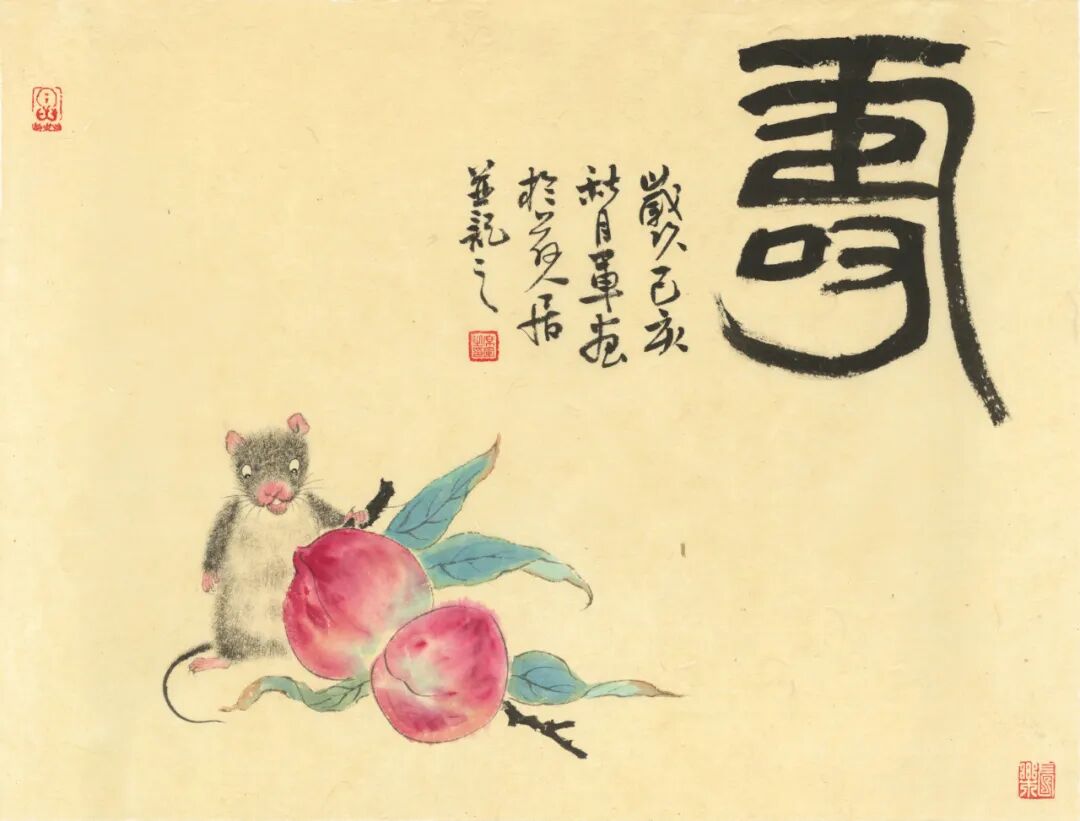 壽
歲次己亥
秋月軍畫
於人居
並記之